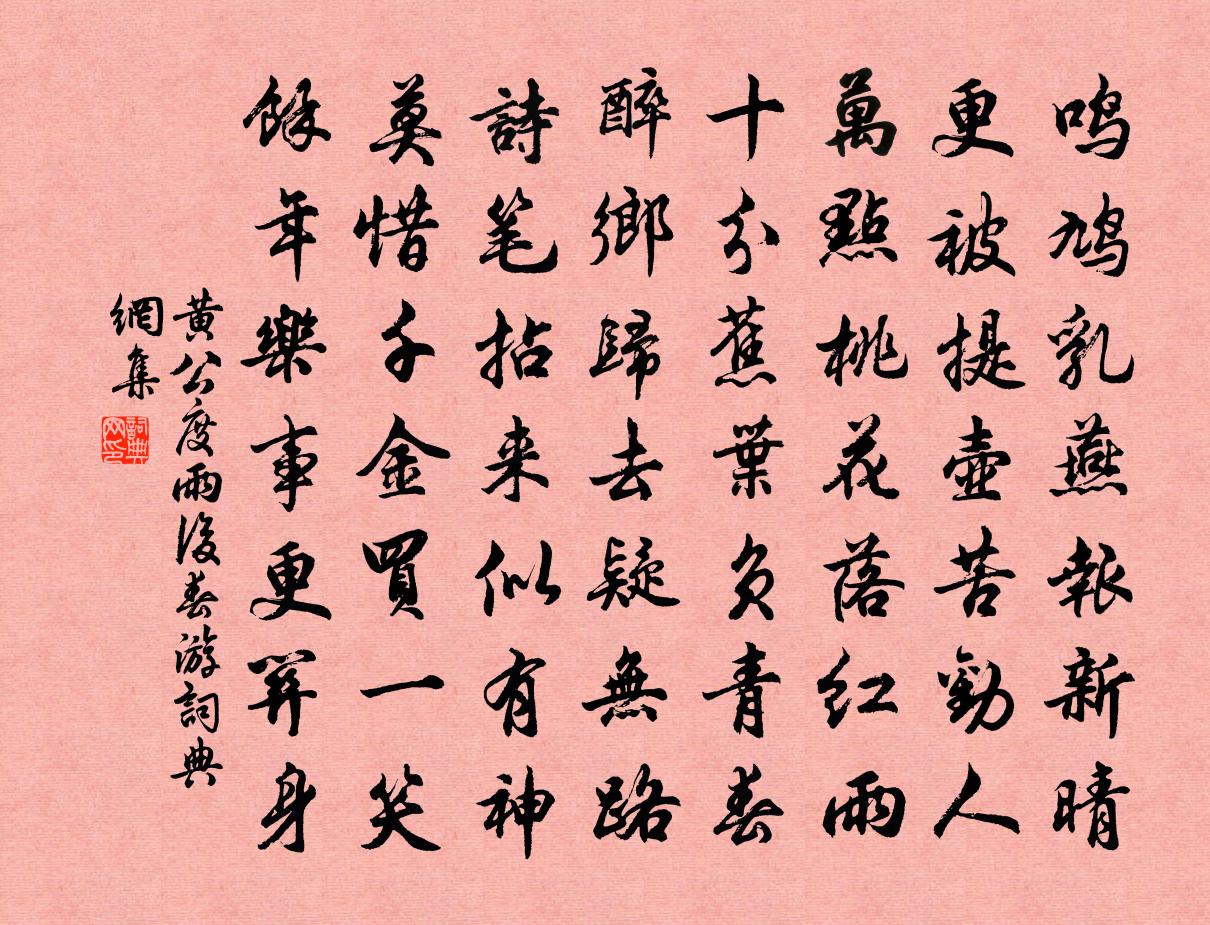 鳴鳩乳燕報新晴
更被提壺苦勸人
萬點桃花落紅雨
十分蕉葉負青春
醉鄉歸去疑無路
詩笔拈来似有神
莫惜千金買一笑
餘年樂事更關身
黄公度雨後春游詞典
網集
詞典网印